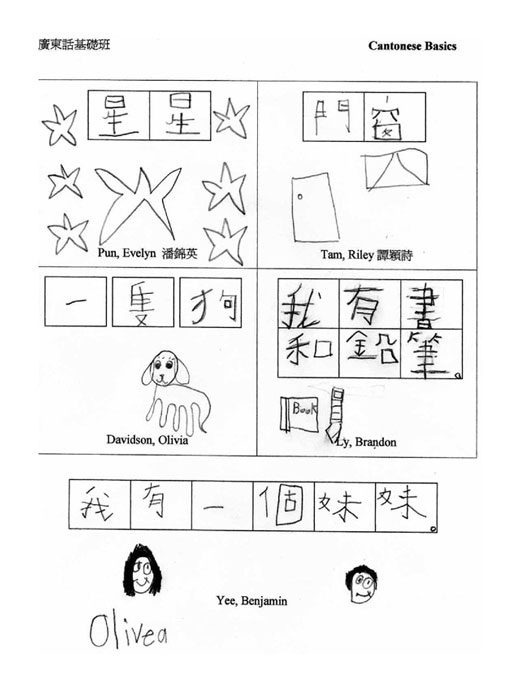 廣東話基礎班 Cantonese Basics
星星
Pun, Evelyn 潘錦英
門窗
Tam, Riley 譚穎詩
一隻狗
Davidson, Olivia
我有書
和鉛筆。
Book
Ly, Brandon
我有一個妹妹。
Yee, Benjamin
Olivea